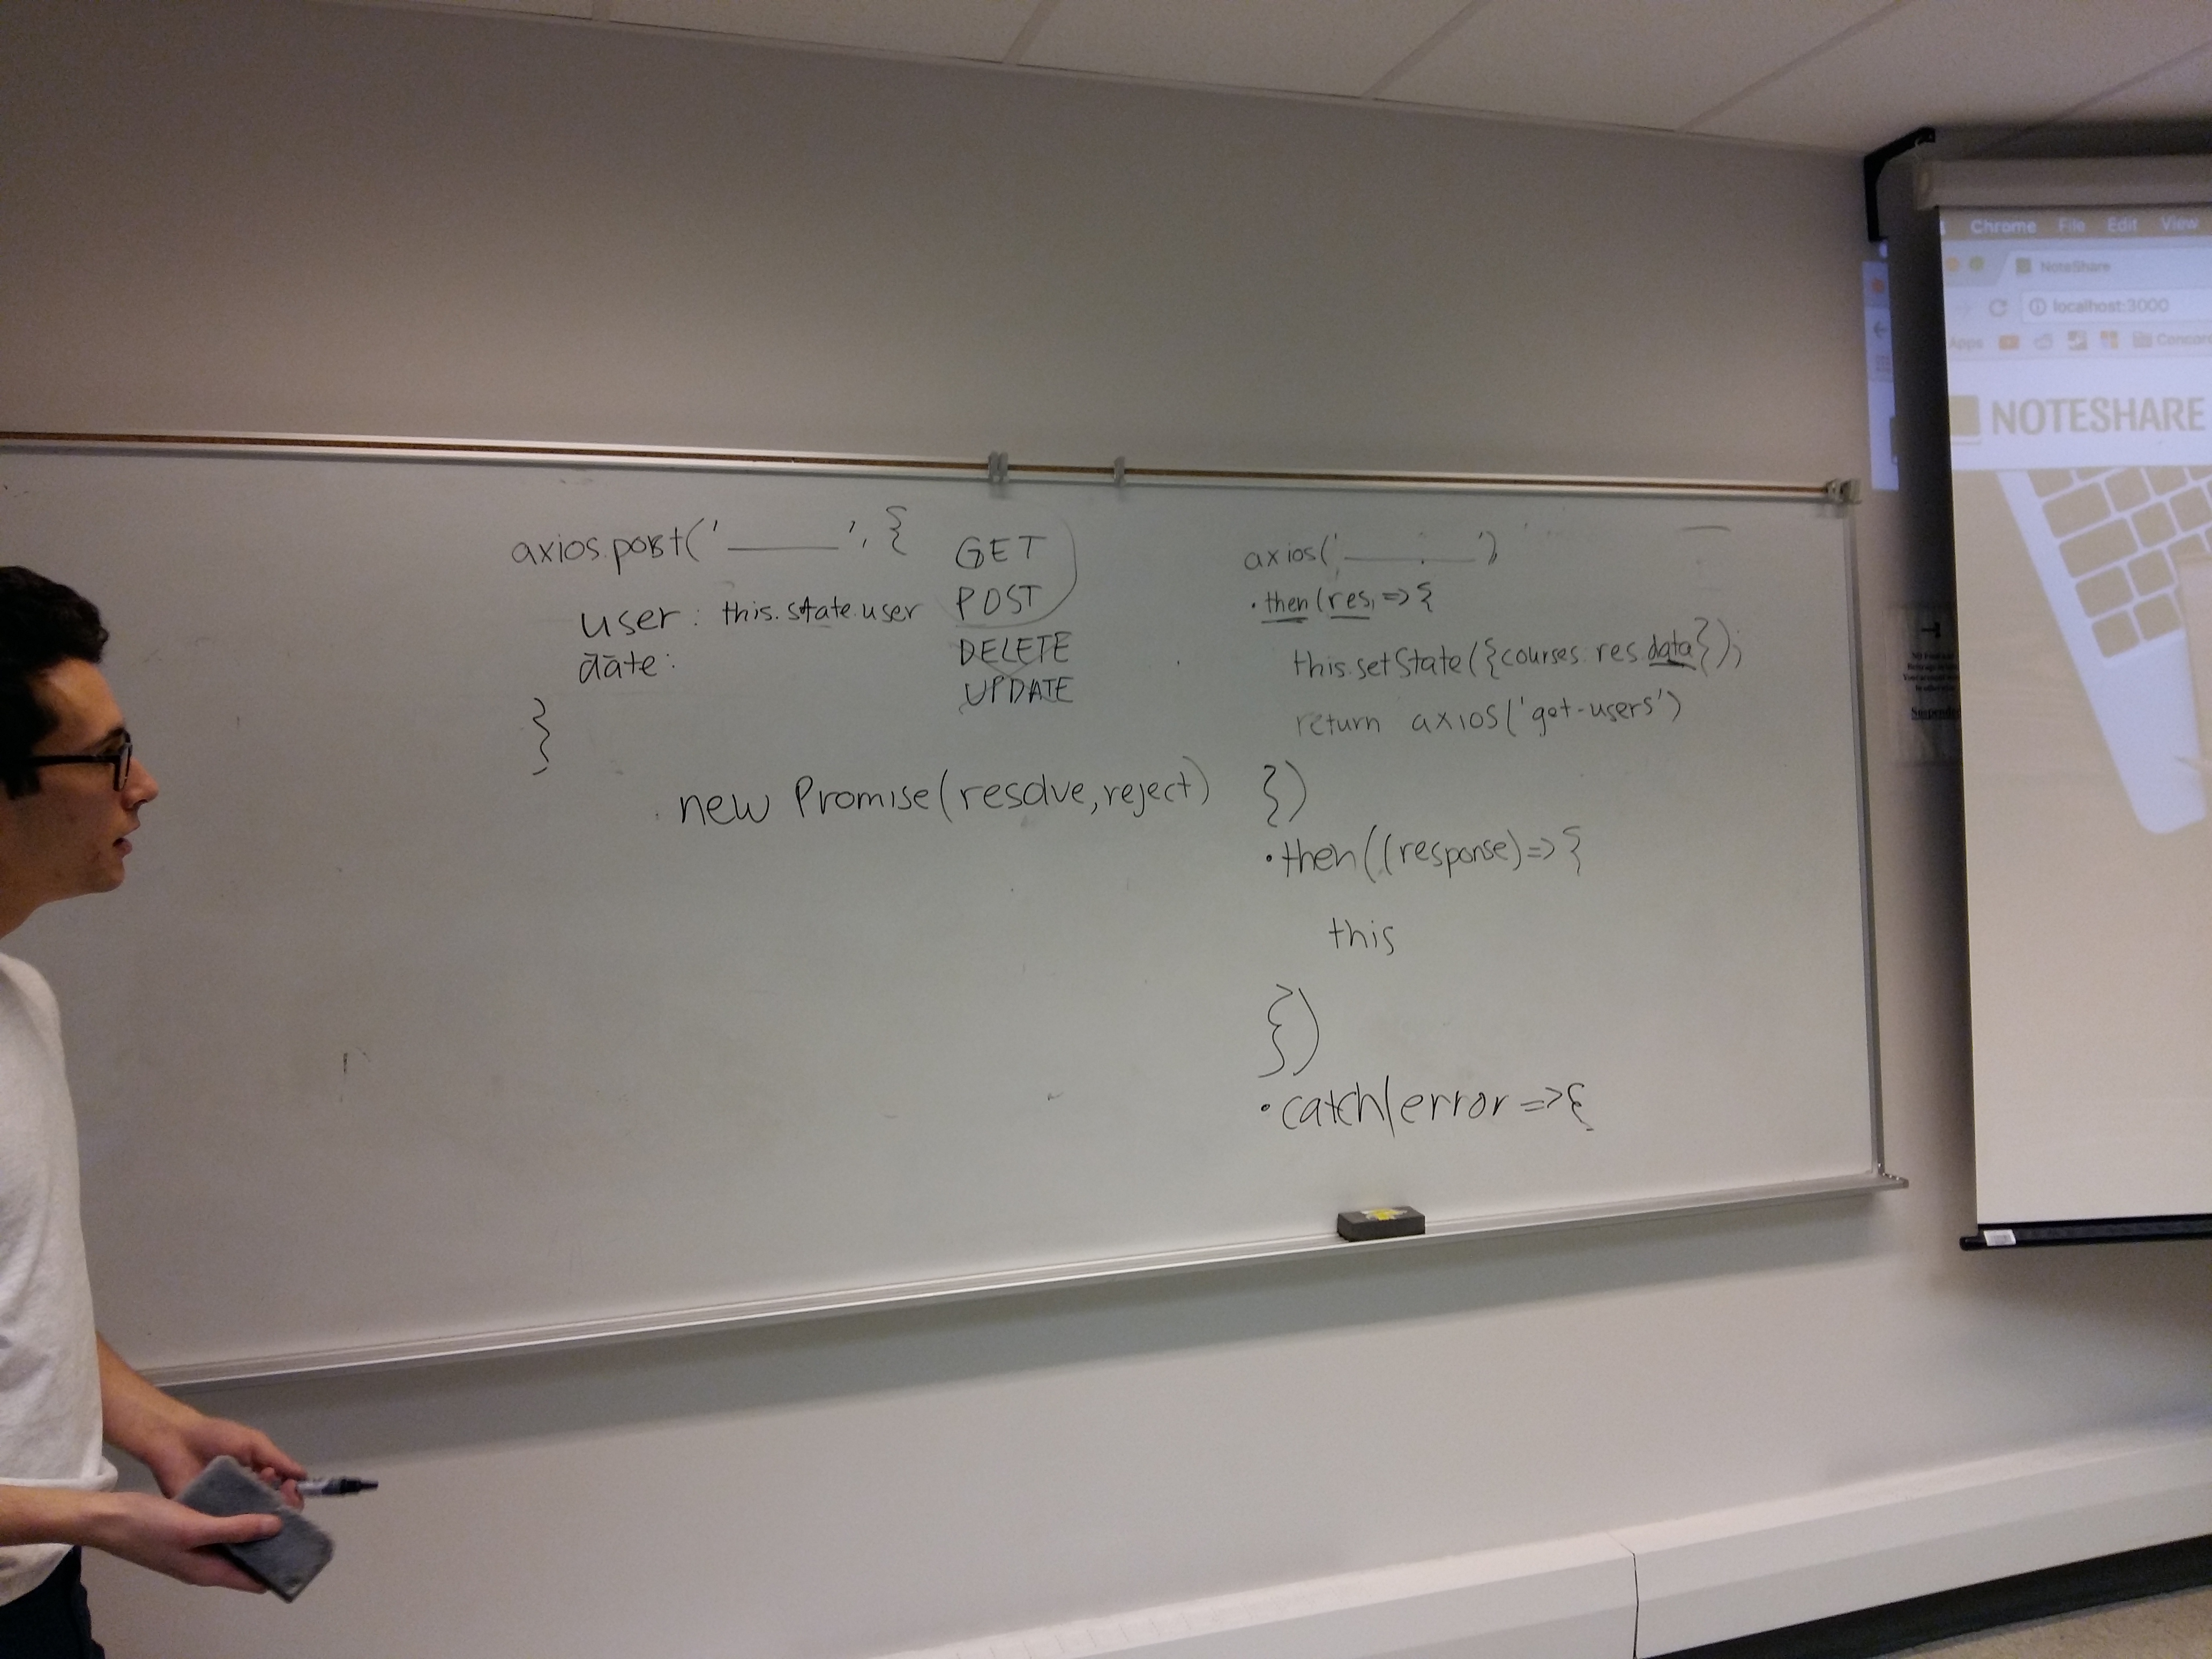 axios.post('______', {
user: this.state.user
date:
}
GET
POST
DELETE
UPDATE
new Promise(resolve, reject)
axios('______')
.then(res => {
this.setState({courses: res.data});
return axios('get-users')
})
.then((response) => {
this
})
.catch(error => {
Chrome File Edit View
NoteShare
localhost:3000
Apps
NOTESHARE